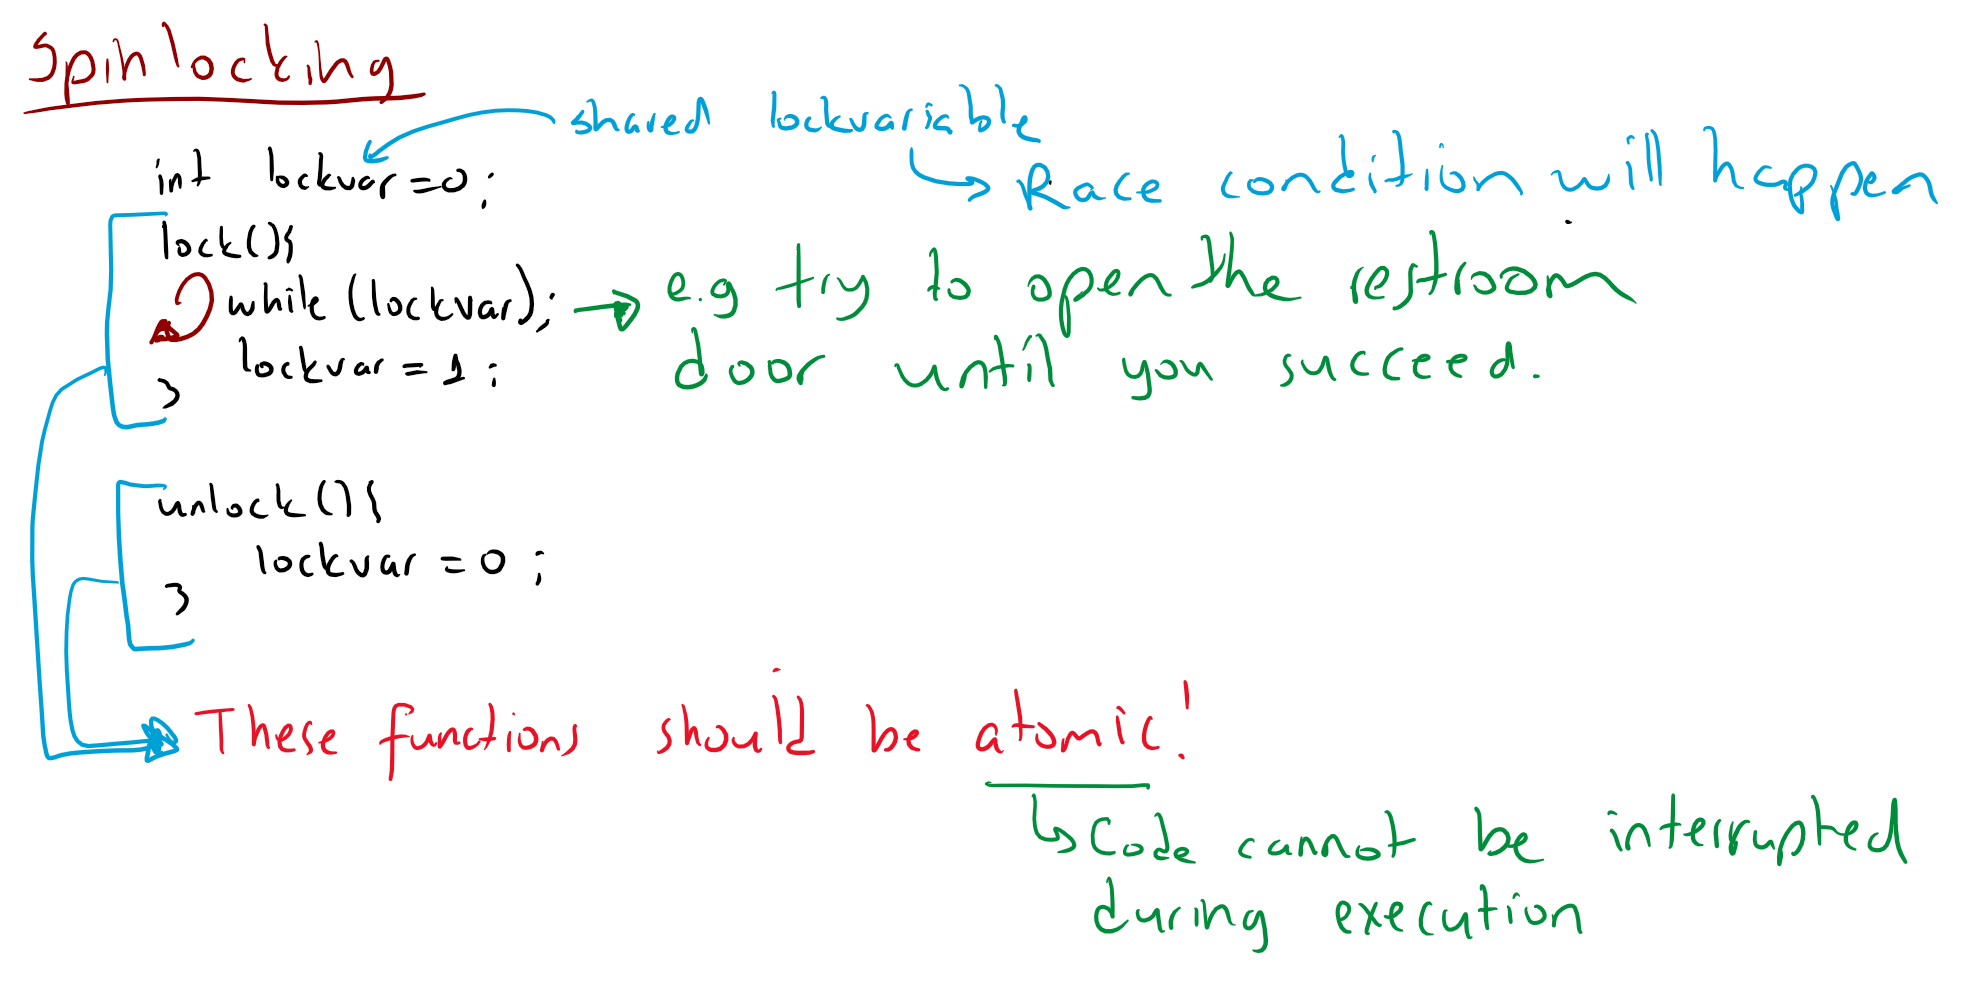 Spinlocking
shared lockvariable
int lockvar=0;
Race condition will happen
lock(){
while (lockvar);
e.g try to open the restroom
door until you succeed.
lockvar = 1;
}
unlock(){
lockvar = 0;
}
These functions should be atomic!
Code cannot be interrupted
during execution